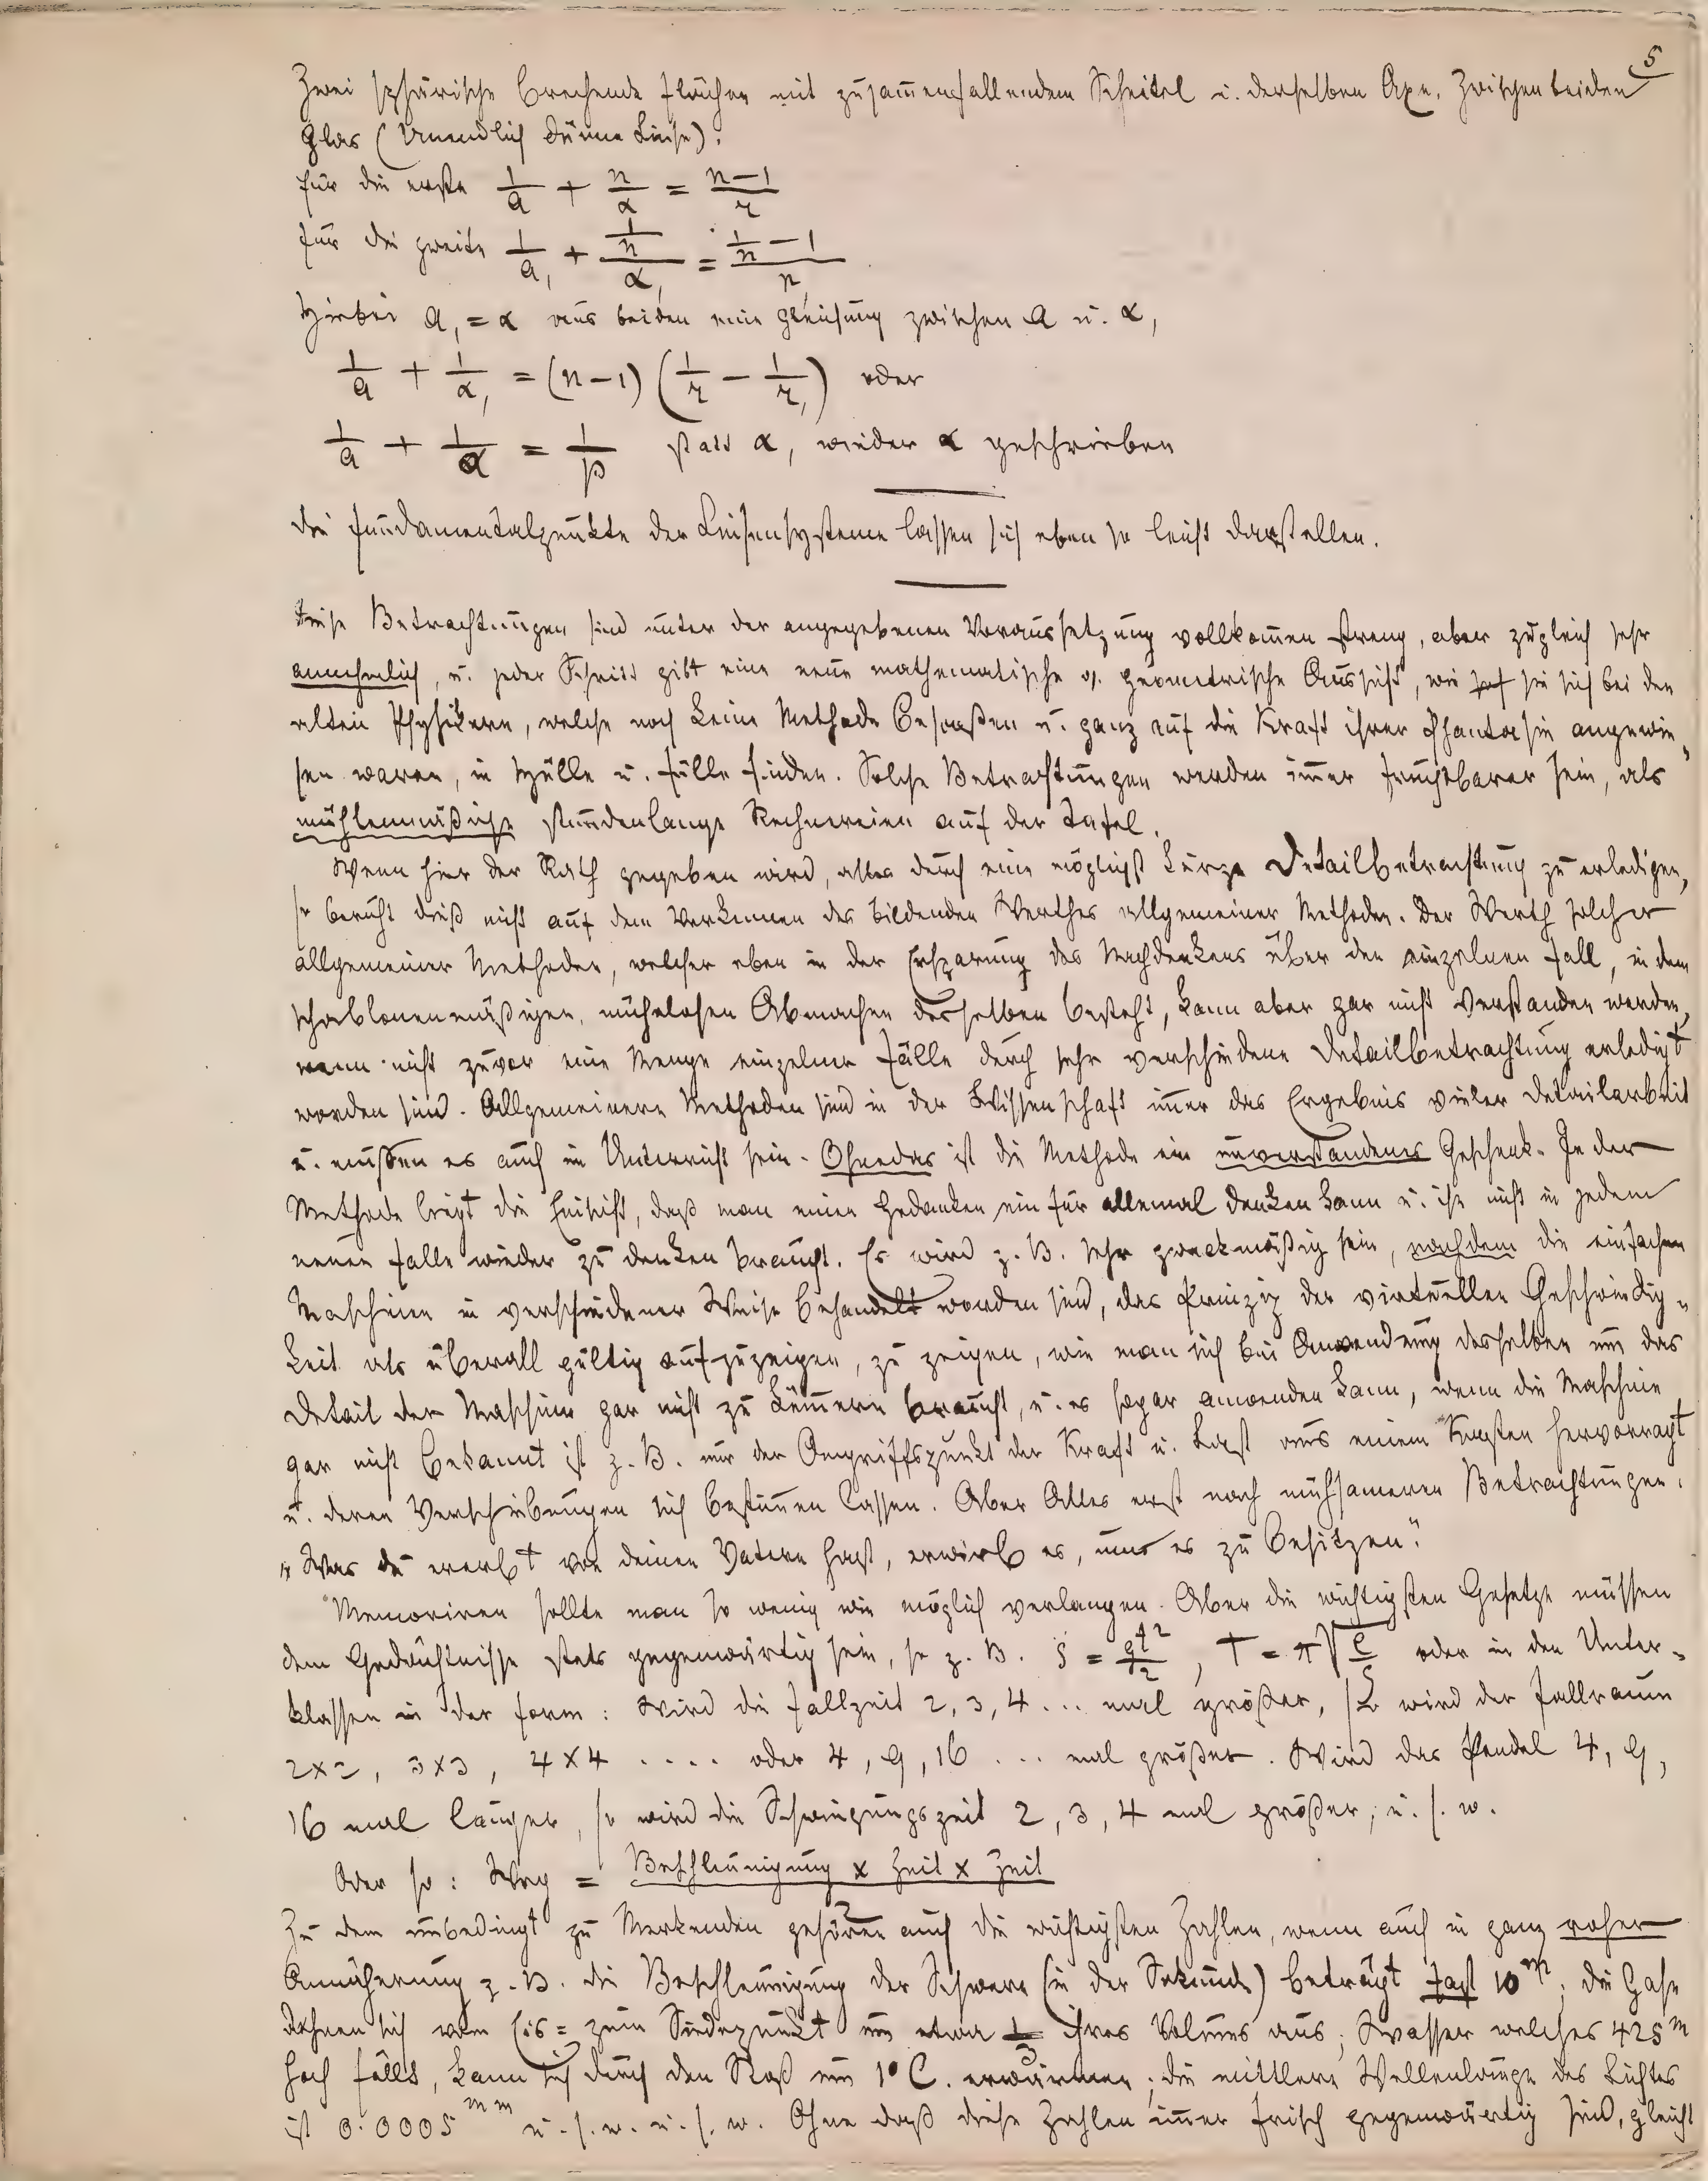 5
Zwei sphärische brechende Flächen mit zusam̄enfallendem Scheitel u. derselben Axe. Zwischen beiden
Glas (Unendlich dünne Linse).
Für die erste 1/a + n/α = (n−1)/r
Für die zweite 1/a, + (1/n)/α, = (1/n − 1)/r,
Hiebei a, = α aus beiden eine Gleichung zwischen a u. α,
1/a + 1/α, = (n−1) (1/r − 1/r,) oder
1/a + 1/α = 1/p statt α, wieder α geschrieben
Die Fundamentalpunkte der Linsensysteme lassen sich eben so leicht darstellen.
Diese Betrachtungen sind unter der angegebenen Voraussetzung vollkom̄en streng, aber zugleich sehr
annehmlich, u. jeder Schritt gibt eine neue mathematische o. geometrische Aussicht, wie sie sich bei den
alten Physikern, welche noch keine Methode besaßen u. ganz auf die Kraft ihrer Phantasie angewie„
sen waren, in Hülle u. Fülle finden. Solche Betrachtungen werden im̄er fruchtbarer sein, als
mühlenmäßige stundenlange Rechnereien auf der Tafel.
Wenn hier der Rath gegeben wird, alles durch eine möglichst kurze Detailbetrachtung zu erledigen,
so beruht dieß nicht auf dem Verkennen des bildenden Werthes allgemeiner Methoden. Der Werth solcher
allgemeiner Methoden, welcher eben in der Ersparung des Nachdenkens über den einzelnen Fall, in dem
schablonenmäßigen, mühelosen Abmachen desselben besteht, kann aber gar nicht verstanden werden,
wenn nicht zuvor eine Menge einzelner Fälle durch sehr verschiedene Detailbetrachtung erledigt
worden sind. Allgemeinere Methoden sind in der Wissenschaft im̄er das Ergebnis vieler Detailarbeit
u. müßen es auch im Unterricht sein. Ohnedas ist die Methode ein unverstandenes Geschenk. In der
Methode liegt die Einsicht, daß man einen Gedanken ein für allemal denken kann u. ihn nicht in jedem
neuen Falle wieder zu denken braucht. Es wird z. B. sehr zweckmäßig sein, nachdem die einfachen
Maschinen in verschiedener Weise behandelt worden sind, das Prinzip der virtuellen Geschwindig„
keit als überall gültig aufzuzeigen, zu zeigen, wie man sich bei Anwendung desselben um das
Detail der Maschine gar nicht zu küm̄ern braucht, u. es sogar anwenden kann, wenn die Maschine
gar nicht bekannt ist z. B. nur der Angriffspunkt der Kraft u. Last aus einem Kasten hervorragt
u. deren Verschiebungen sich bestim̄en lassen. Aber Alles erst nach mühsameren Betrachtungen.
„Was du ererbt von deinen Vätern hast, erwirb es, um es zu besitzen.“
Memoriren sollte man so wenig wie möglich verlangen. Aber die wichtigsten Gesetze müssen
dem Gedächtnisse stets gegenwärtig sein, so z. B. s = gt²/2, T = π√(l/g) oder in den Unter„
klassen in der Form: Wird die Fallzeit 2, 3, 4 ... mal größer, so wird der Fallraum
2×2, 3×3, 4×4 .... oder 4, 9, 16 ... mal größer. Wird das Pendel 4, 9,
16 mal länger, so wird die Schwingungszeit 2, 3, 4 mal größer, u. s. w.
Oder so: Weg = (Beschleunigung × Zeit × Zeit)/2
Zu dem unbedingt zu Merkenden gehören auch die wichtigsten Zahlen, wenn auch in ganz roher
Annäherung z. B. die Beschleunigung der Schwere (in der Sekunde) beträgt fast 10 m; die Gase
dehnen sich vom Eis= zum Siedepunkt um etwa 1/3 ihres Volums aus; Wasser welches 425 m
hoch fällt, kann sich durch den Stoß um 1° C. erwärmen; die mittlere Wellenlänge des Lichtes
ist 0.0005 mm u. s. w. u. s. w. Ohne daß diese Zahlen im̄er frisch gegenwärtig sind, gleicht